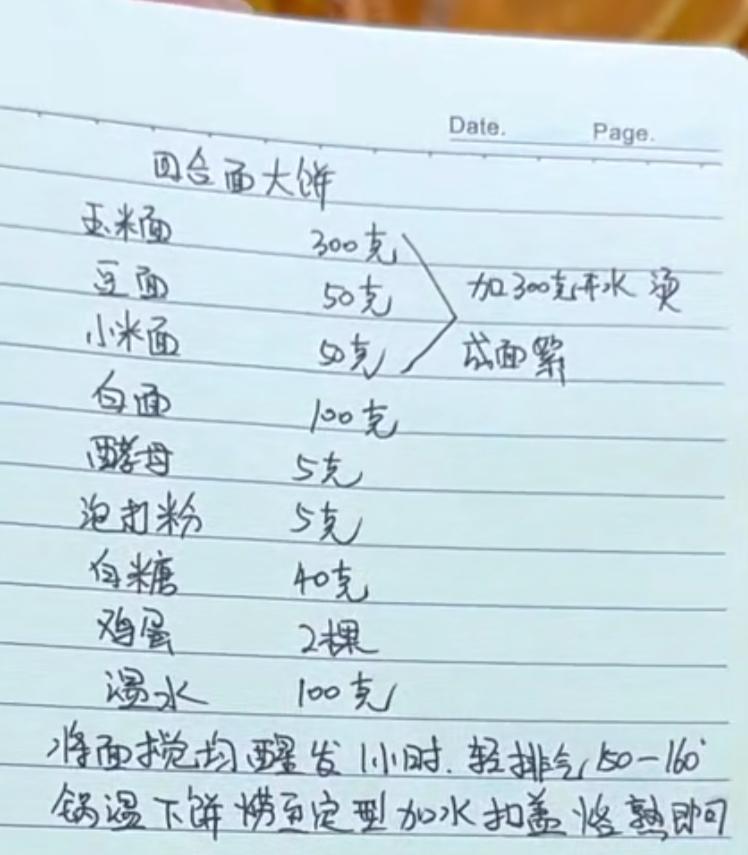 Date. Page.
四合面大饼
玉米面 300克
豆面 50克 加300克开水 烫
小米面 50克 成面絮
白面 100克
酵母 5克
泡打粉 5克
白糖 40克
鸡蛋 2棵
温水 100克
将面搅均醒发1小时.轻排气,150-160°
锅温下饼烤至定型加水扣盖烙熟即可